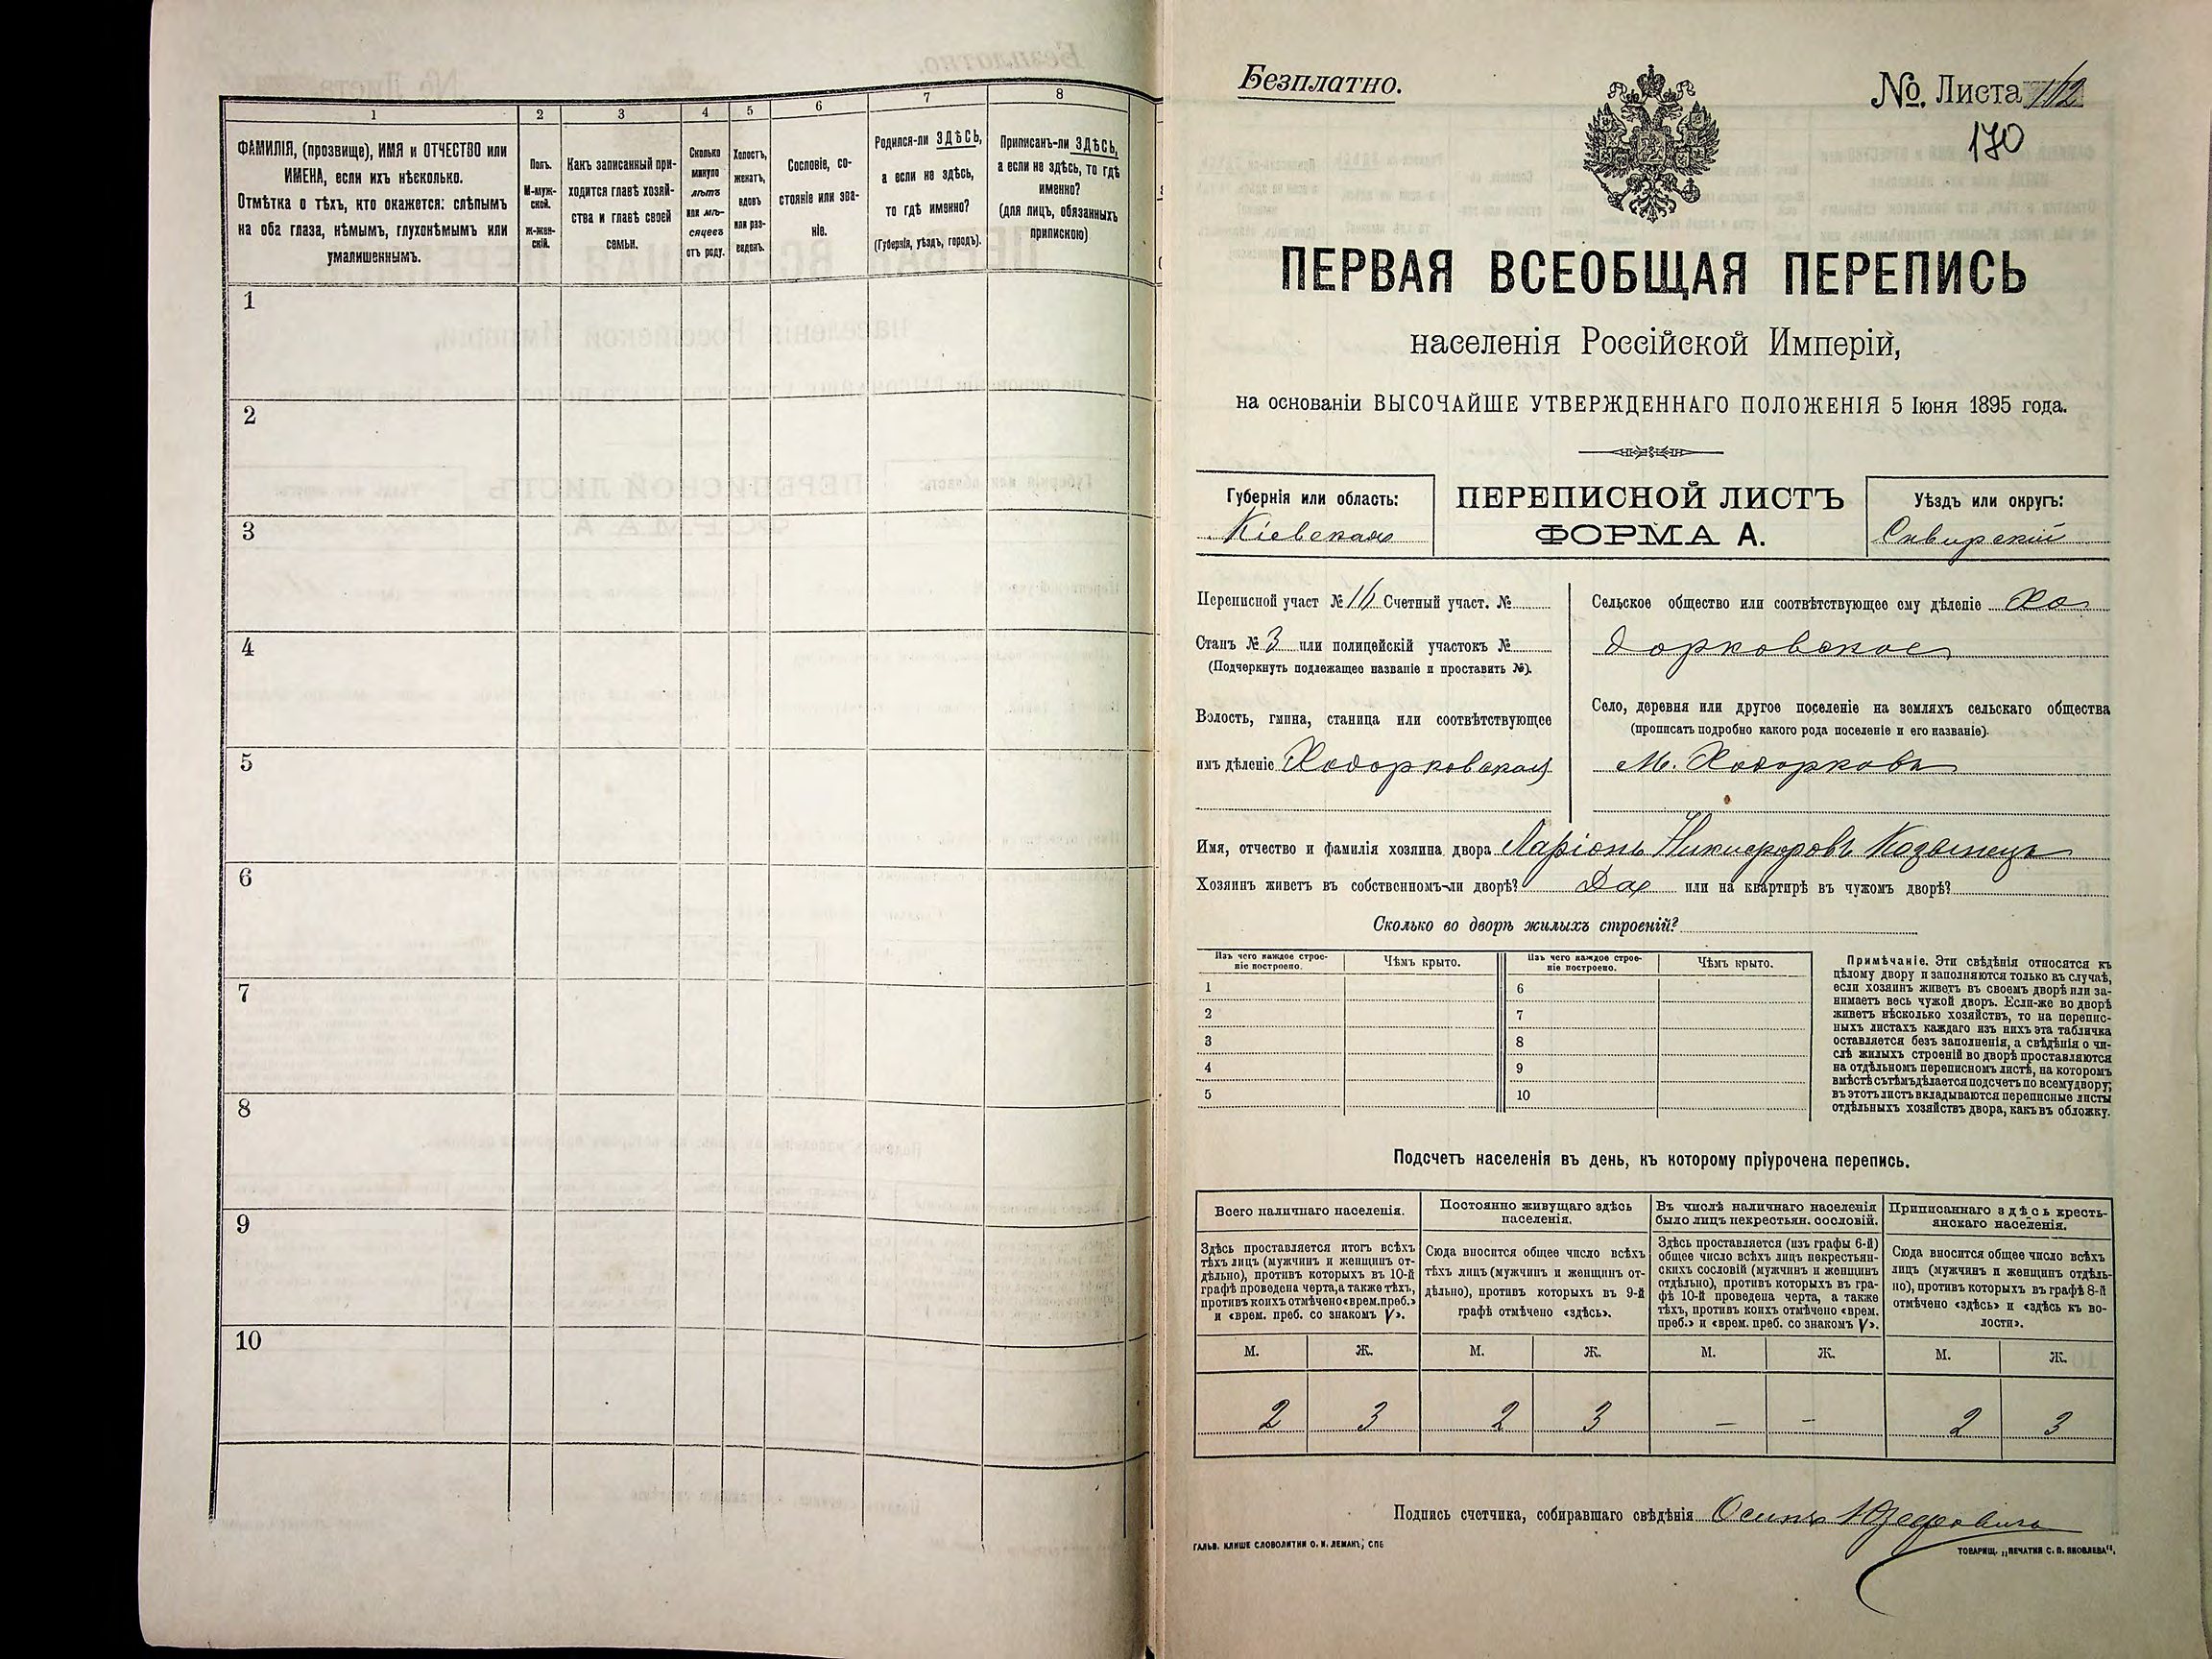 1
2
3
4
5
6
7
8
ФАМИЛІЯ, (прозвище), ИМЯ и ОТЧЕСТВО или
ИМЕНА, если ихъ нѣсколько.
Отмѣтка о тѣхъ, кто окажется: слѣпымъ
на оба глаза, нѣмымъ, глухонѣмымъ или
умалишеннымъ.
Полъ.
М-муж-
ской.
ж-жен-
скій.
Какъ записанный при-
ходится главѣ хозяй-
ства и главѣ своей
семьи.
Сколько
минуло
лѣтъ
или мѣ-
сяцевъ
отъ роду.
Холостъ,
женатъ,
вдовъ
или раз-
веденъ.
Сословіе, со-
стояніе или зва-
ніе.
Родился-ли ЗДѢСЬ,
а если не здѣсь,
то гдѣ именно?
(Губернія, уѣздъ, городъ).
Приписанъ-ли ЗДѢСЬ,
а если не здѣсь, то гдѣ
именно?
(для лицъ, обязанныхъ
припискою)
1
2
3
4
5
6
7
8
9
10
Безплатно.
№ Листа
170
ПЕРВАЯ ВСЕОБЩАЯ ПЕРЕПИСЬ
населенія Россійской Имперіи,
на основаніи ВЫСОЧАЙШЕ УТВЕРЖДЕННАГО ПОЛОЖЕНІЯ 5 Іюня 1895 года.
Губернія или область:
Кіевская
ПЕРЕПИСНОЙ ЛИСТЪ
ФОРМА А.
Уѣздъ или округъ:
Сквирскій
Переписной участ № 16 Счетный участ. №
Станъ № 3 или полицейскій участокъ №
(Подчеркнуть подлежащее названіе и проставить №).
Волость, гмина, станица или соотвѣтствующее
имъ дѣленіе Ходорковская
Сельское общество или соотвѣтствующее ему дѣленіе Хо
дорковское
Село, деревня или другое поселеніе на земляхъ сельскаго общества
(прописать подробно какого рода поселеніе и его названіе).
М. Ходорковъ
Имя, отчество и фамилія хозяина двора Ларіонъ Никифоровъ
Хозяинъ живетъ въ собственномъ-ли дворѣ? Да или на квартирѣ въ чужомъ дворѣ?
Сколько во дворѣ жилыхъ строеній?
Изъ чего каждое строе-
ніе построено.
Чѣмъ крыто.
Изъ чего каждое строе-
ніе построено.
Чѣмъ крыто.
1
2
3
4
5
6
7
8
9
10
Примѣчаніе. Эти свѣдѣнія относятся къ
цѣлому двору и заполняются только въ случаѣ,
если хозяинъ живетъ въ своемъ дворѣ или за-
нимаетъ весь чужой дворъ. Если-же во дворѣ
живетъ нѣсколько хозяйствъ, то на перепис-
ныхъ листахъ каждаго изъ нихъ эта табличка
оставляется безъ заполненія, а свѣдѣнія о чи-
слѣ жилыхъ строеній во дворѣ проставляются
на отдѣльномъ переписномъ листѣ, на которомъ
вмѣстѣ съ тѣмъ дѣлается подсчетъ по всему двору;
въ этотъ листъ вкладываются переписные листы
отдѣльныхъ хозяйствъ двора, какъ въ обложку.
Подсчетъ населенія въ день, къ которому пріурочена перепись.
Всего наличнаго населенія.
Здѣсь проставляется итогъ всѣхъ
тѣхъ лицъ (мужчинъ и женщинъ от-
дѣльно), противъ которыхъ въ 10-й
графѣ проведена черта, а также тѣхъ,
противъ коихъ отмѣчено «врем. преб.»
и «врем. преб. со знакомъ V».
Постоянно живущаго здѣсь
населенія.
Сюда вносится общее число всѣхъ
тѣхъ лицъ (мужчинъ и женщинъ от-
дѣльно), противъ которыхъ въ 9-й
графѣ отмѣчено «здѣсь».
Въ числѣ наличнаго населенія
было лицъ некрестьян. сословій.
Здѣсь проставляется (изъ графы 6-й)
общее число всѣхъ лицъ некрестьян-
скихъ сословій (мужчинъ и женщинъ
отдѣльно), противъ которыхъ въ гра-
фѣ 10-й проведена черта, а также
тѣхъ, противъ коихъ отмѣчено «врем.
преб.» и «врем. преб. со знакомъ V».
Приписаннаго здѣсь кресть-
янскаго населенія.
Сюда вносится общее число всѣхъ
лицъ (мужчинъ и женщинъ отдѣль-
но), противъ которыхъ въ графѣ 8-й
отмѣчено «здѣсь» и «здѣсь къ во-
лости».
М. Ж. М. Ж. М. Ж. М. Ж.
2 3 2 3 — — 2 3
Подпись счетчика, собиравшаго свѣдѣнія Осипъ
ГАЛЬВ. КЛИШЕ СЛОВОЛИТНИ О. И. ЛЕМАНЪ, СПБ
ТОВАРИЩ. „ПЕЧАТНЯ С. П. ЯКОВЛЕВА“.